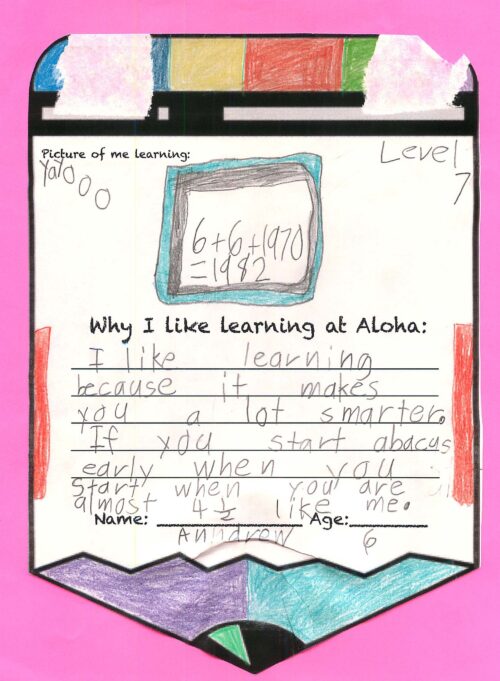 Picture of me learning:
Level
7
Yayooo
6+6+1970
=1982
Why I like learning at Aloha:
I like learning
because it makes
you a lot smarter.
If you start abacus
early when you
Start when you are
almost 4½ like me.
Name: Age:
Anndrew 6